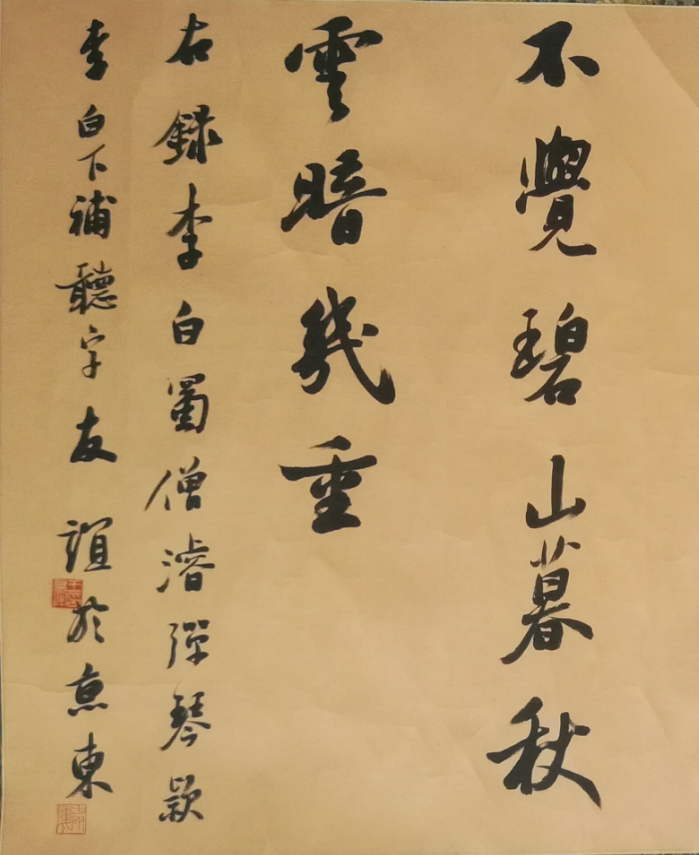 不覺碧山暮秋
雲暗幾重
右録李白蜀僧濬彈琴款
李白下補聽字友誼於京東